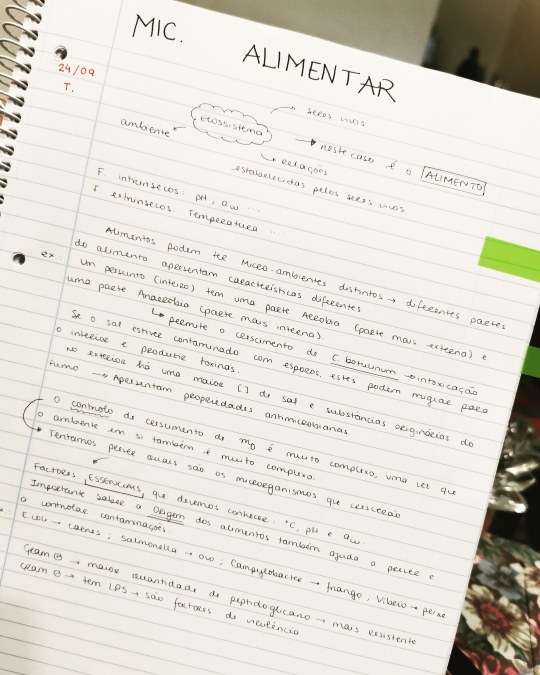 MIC. ALIMENTAR
24/09
T.
Ecossistema
seres vivos
ambiente
neste caso é o ALIMENTO
relações
estabelecidas pelos seres vivos
F. intrínsecos: pH, aw ...
F. extrínsecos: Temperatura ...
Alimentos podem ter micro-ambientes distintos → diferentes partes
do alimento apresentam características diferentes
ex: Um presunto (inteiro) tem uma parte Aeróbia (parte mais externa) e
uma parte Anaeróbia (parte mais interna).
↳ permite o crescimento de C. botulinum → intoxicação
Se o sal estiver contaminado com esporos, estes podem migrar para
o interior e produzir toxinas.
No exterior há uma maior [ ] de sal e substâncias originárias do
fumo → Apresentam propriedades antimicrobianas
O controlo de crescimento de mo é muito complexo, uma vez que
o ambiente em si também é muito complexo.
Tentamos prever quais são os microorganismos que crescerão
Factores ESSENCIAIS que devemos conhecer: °C, pH e aw.
Importante saber a Origem dos alimentos também ajuda a prever e
a controlar contaminações.
E. coli → carnes; Salmonella → ovo; Campylobacter → frango; Vibrio → peixe
Gram ⊕ → maior quantidade de peptidoglicano → mais resistente
Gram ⊖ → tem LPS → são factores de virulência